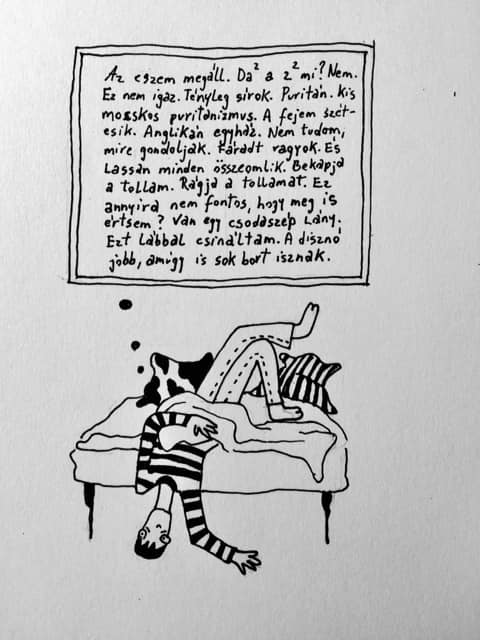 Az eszem megáll. Da² a z² mi? Nem.
Ez nem igaz. Tényleg sírok. Puritán. Kis
moszkos puritánizmus. A fejem szét-
esik. Anglikán egyház. Nem tudom,
mire gondolják. Fáradt vagyok. És
Lassan minden összeomlik. Bekapja
a tollam. Rágja a tollamat. Ez
annyira nem fontos, hogy meg is
értsem? Van egy csodaszép lány.
Ezt Lábbal csináltam. A disznó
jobb, amúgy is sok bort isznak.